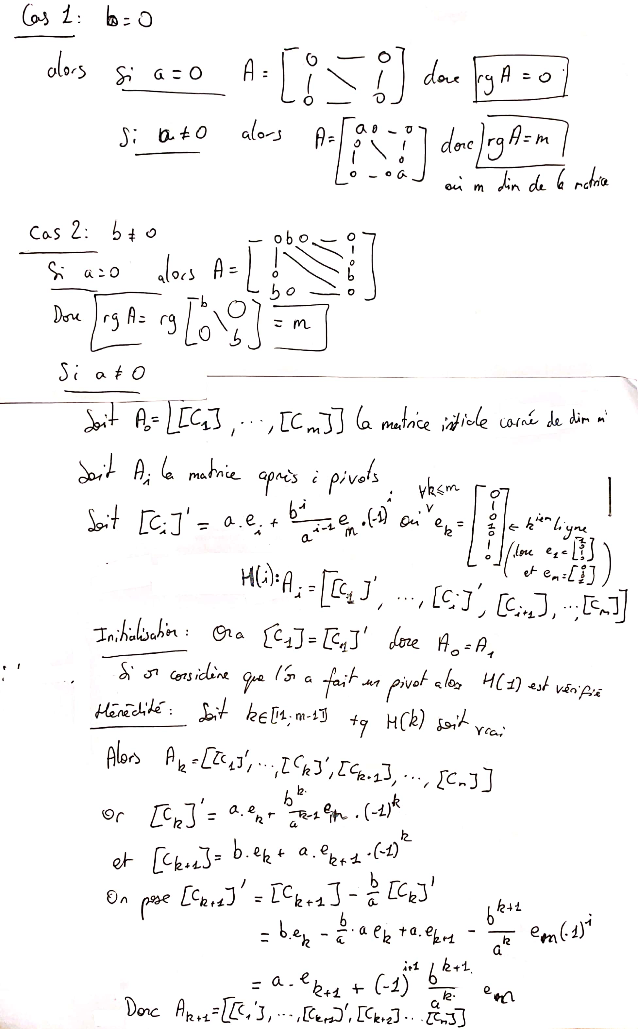 Cas 1: b=0
alors Si a=0 A=[0 — 0 | \ | 0 — 0] donc rg A = 0
Si a≠0 alors A=[a 0 - 0 0 \ | | \ 0 0 - 0 a] donc rg A=m
où m dim de la matrice
Cas 2: b≠0
Si a=0 alors A=[0 b 0 — 0 | \ \ 0 0 \ b b 0 — 0]
Donc rg A = rg [b 0 \ 0 b] = m
Si a≠0
Soit A₀=[[C₁],...,[Cm]] la matrice initiale carré de dim m
Soit Ai la matrice après i pivots
Soit [Ci]' = a.ei + bⁱ/aⁱ⁻¹ em.(-1)ⁱ où ∀k≤m ek = [0 | 0 1 0 | 0] ← kième ligne
(donc e₁=[1 0 0] et em=[0 0 1])
H(i): Ai=[[C₁]', ..., [Ci]', [Ci+1], ..., [Cm]]
Initialisation: On a [C₁]=[C₁]' donc A₀=A₁
Si on considère que l'on a fait un pivot alors H(1) est vérifié
Hérédité: Soit k∈[|1;m-1|] tq H(k) soit vrai
Alors Ak=[[C₁]', ..., [Ck]', [Ck+1], ..., [Cn]]
or [Ck]' = a.ek + bᵏ/aᵏ⁻¹ em.(-1)ᵏ
et [Ck+1] = b.ek + a.ek+1.(-1)ᵏ
On pose [Ck+1]' = [Ck+1] - b/a [Ck]'
= b.ek - b/a.a ek + a.ek+1 - bᵏ⁺¹/aᵏ em(-1)ⁱ
= a.ek+1 + (-1)ⁱ⁺¹ bᵏ⁺¹/aᵏ em
Donc Ak+1=[[C₁'], ..., [Ck+1]', [Ck+2] ... [Cn]]